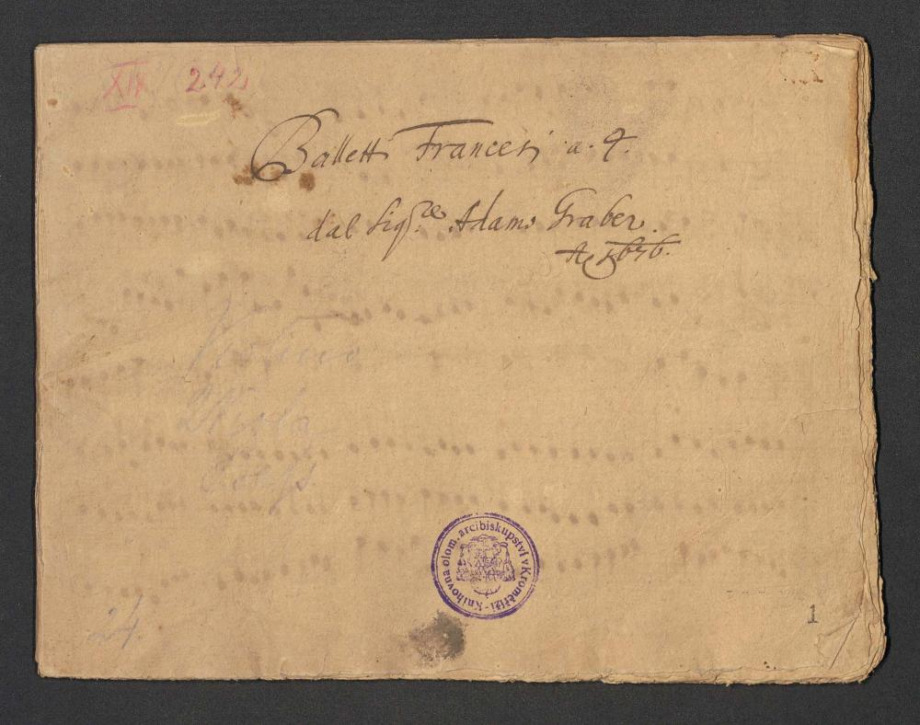 XIV 242
Balletti Francesi a. 4.
dal Sig.re Adamo Graber.
A 1676.
Violino
2 Viola
24.
Knihovna olom. arcibiskupství v Kroměříži
1